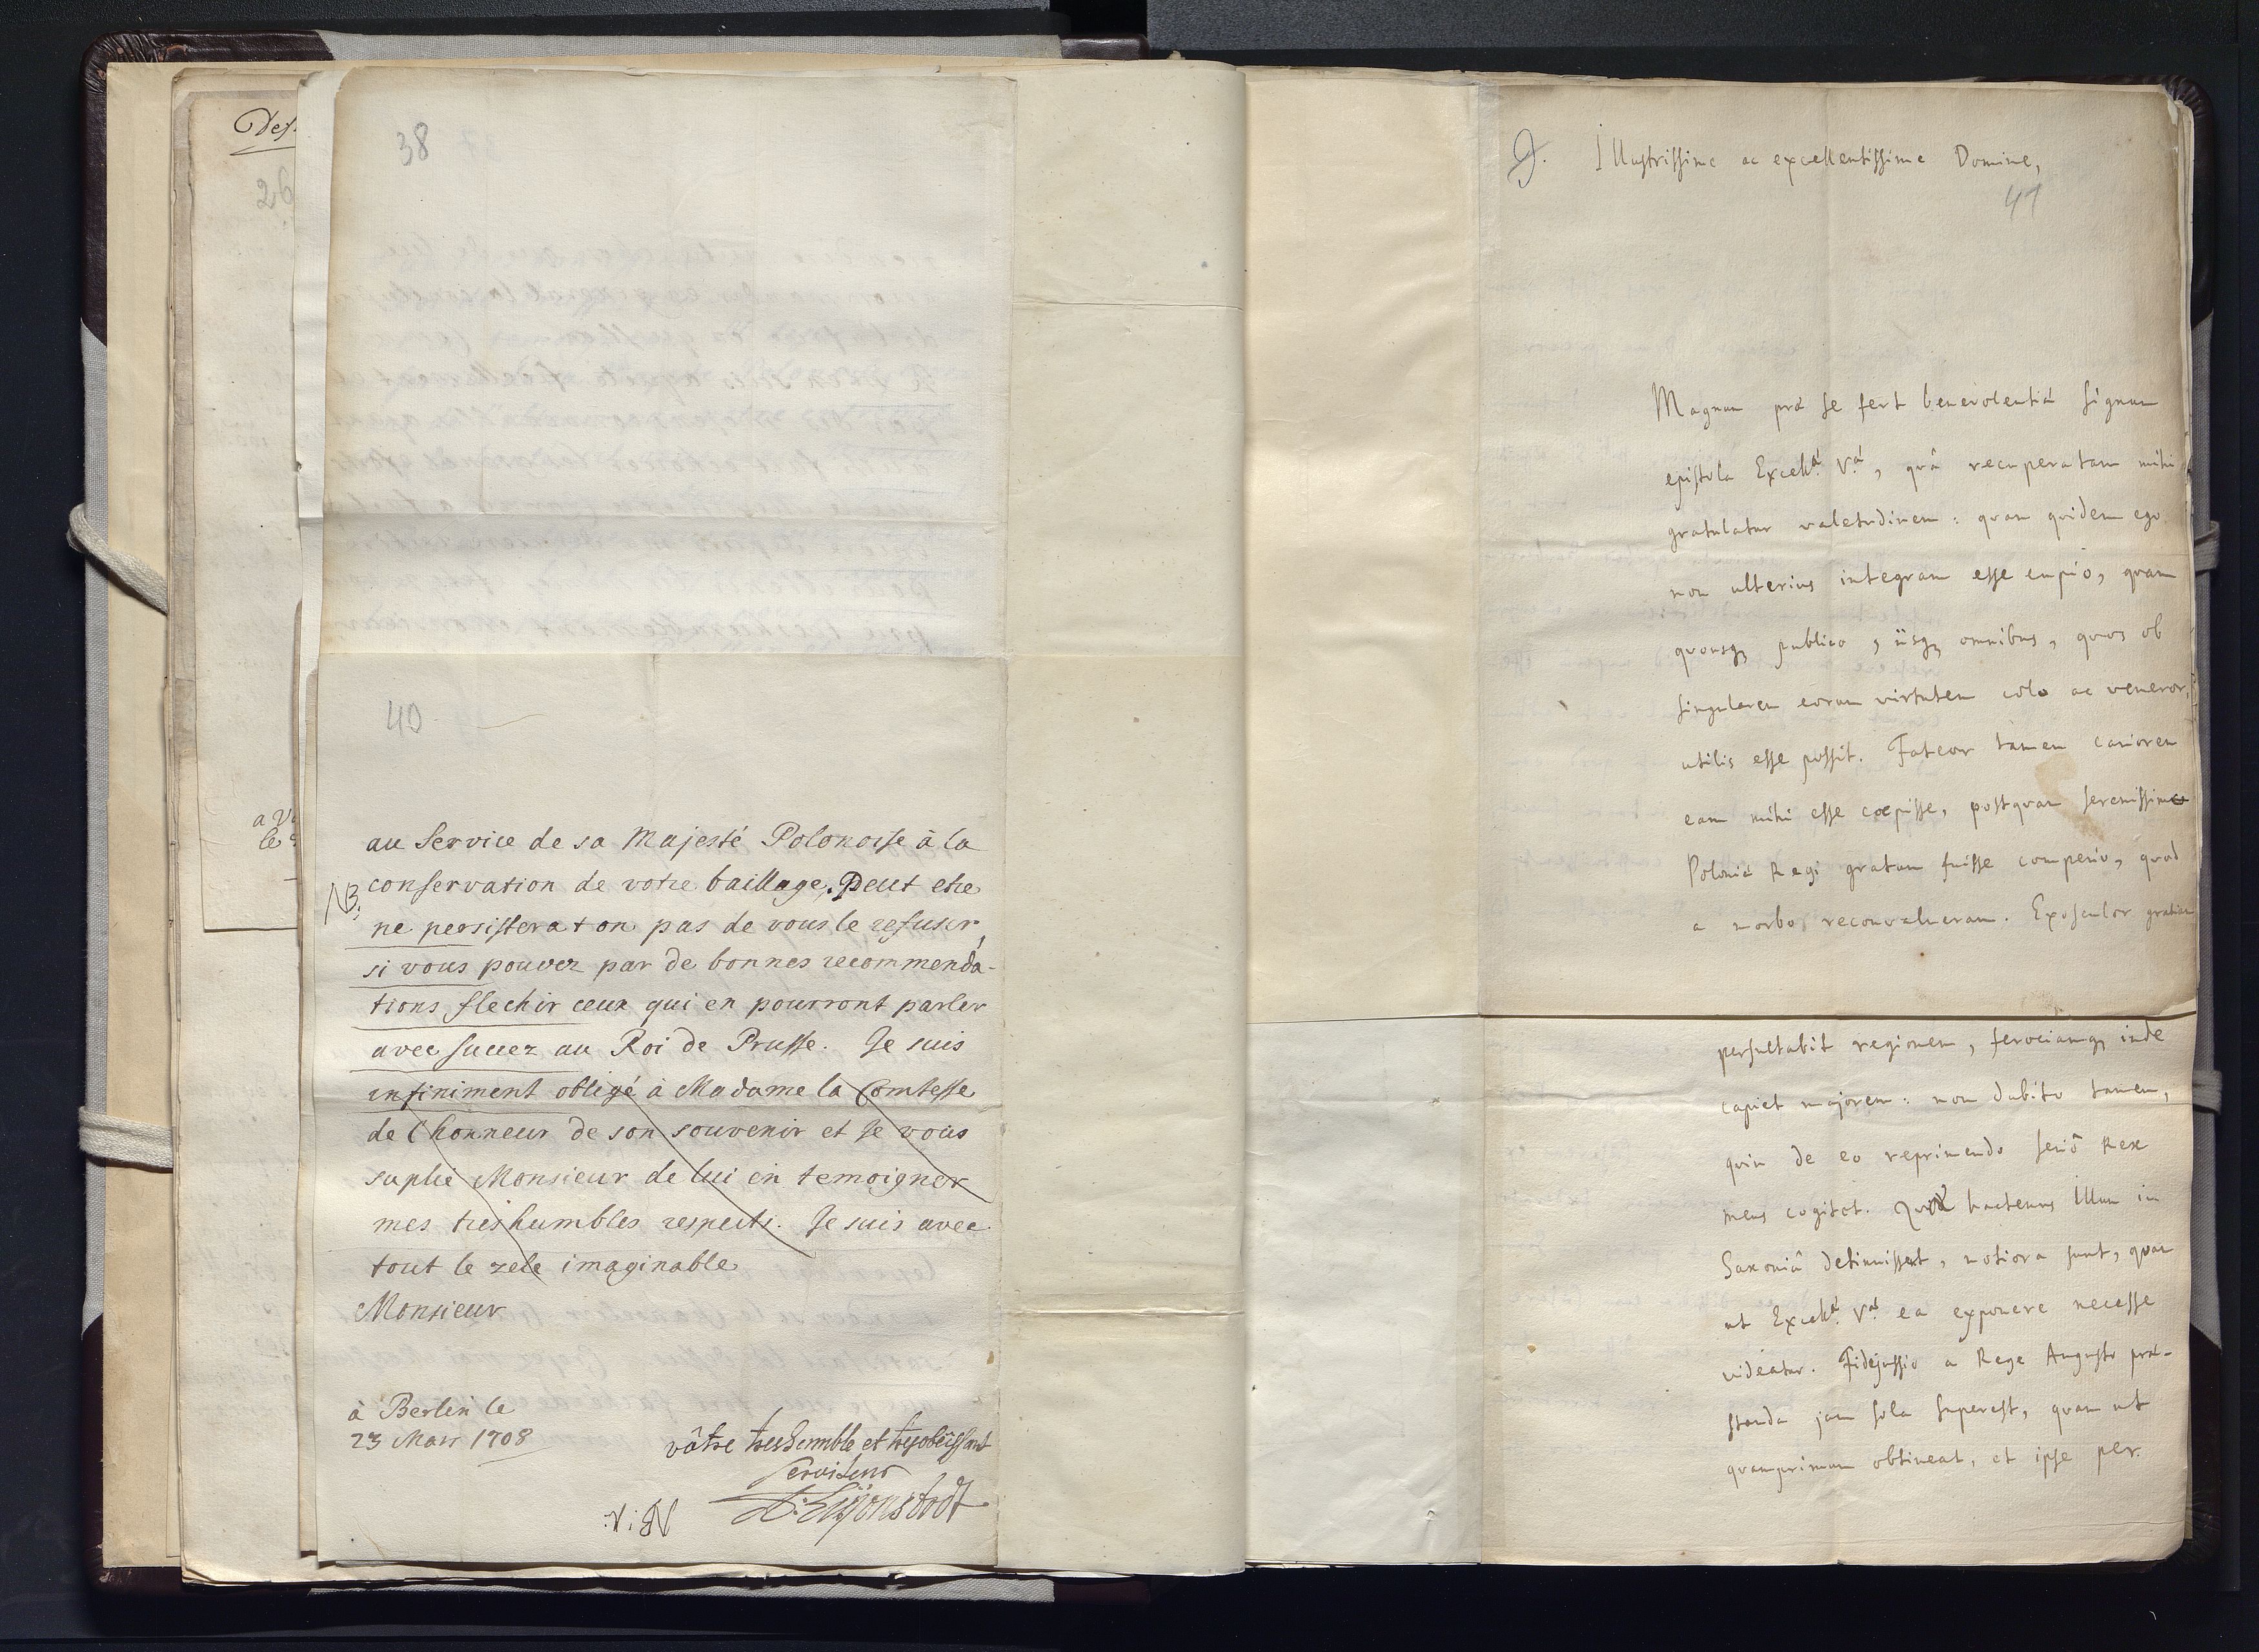 Des
26
a V
le
38
40
au Service de sa Majesté Polonoise à la
conservation de votre baillage. Peut etre
NB.
ne persistera t on pas de vous le refuser,
si vous pouvez par de bonnes recommenda-
tions flechir ceux qui en pourront parler
avec succez au Roi de Prusse. Je suis
infiniment obligé à Madame la Comtesse
de l'honneur de son souvenir et je vous
suplie Monsieur de lui en temoigner
mes tres humbles respects. Je suis avec
tout le zele imaginable
Monsieur
à Berlin le
23 Mars 1708
vôtre treshumble et tresobeissant
serviteur
J. Illustrissime ac excellentissime Domine,
41
Magnum præ se fert benevolentiæ signum
epistola Excellæ. Væ, quâ recuperatam mihi
gratulatur valetudinem: quam quidem ego
non ulterius integram esse cupio, quam
quousq; publico, iisq; omnibus, quos ob
singularem eorum virtutem colo ac veneror,
utilis esse possit. Fateor tamen cariorem
eam mihi esse cœpisse, postquam serenissimo
Poloniæ Regi gratum fuisse comperio, quod
a morbo reconvalueram. Exosculor gratiam
persultabit regionem, ferociamq; inde
capiet majorem: non dubito tamen,
quin de eo reprimendo seriô Rex
meus cogitet. Quæ hactenus illum in
Saxoniâ detinuissent, notiora sunt, quam
ut Excellæ. Væ ea exponere necesse
videatur. Fidejussio a Rege Augusto præ-
standa jam sola superest, quam ut
quamprimum obtineat, et ipse per.